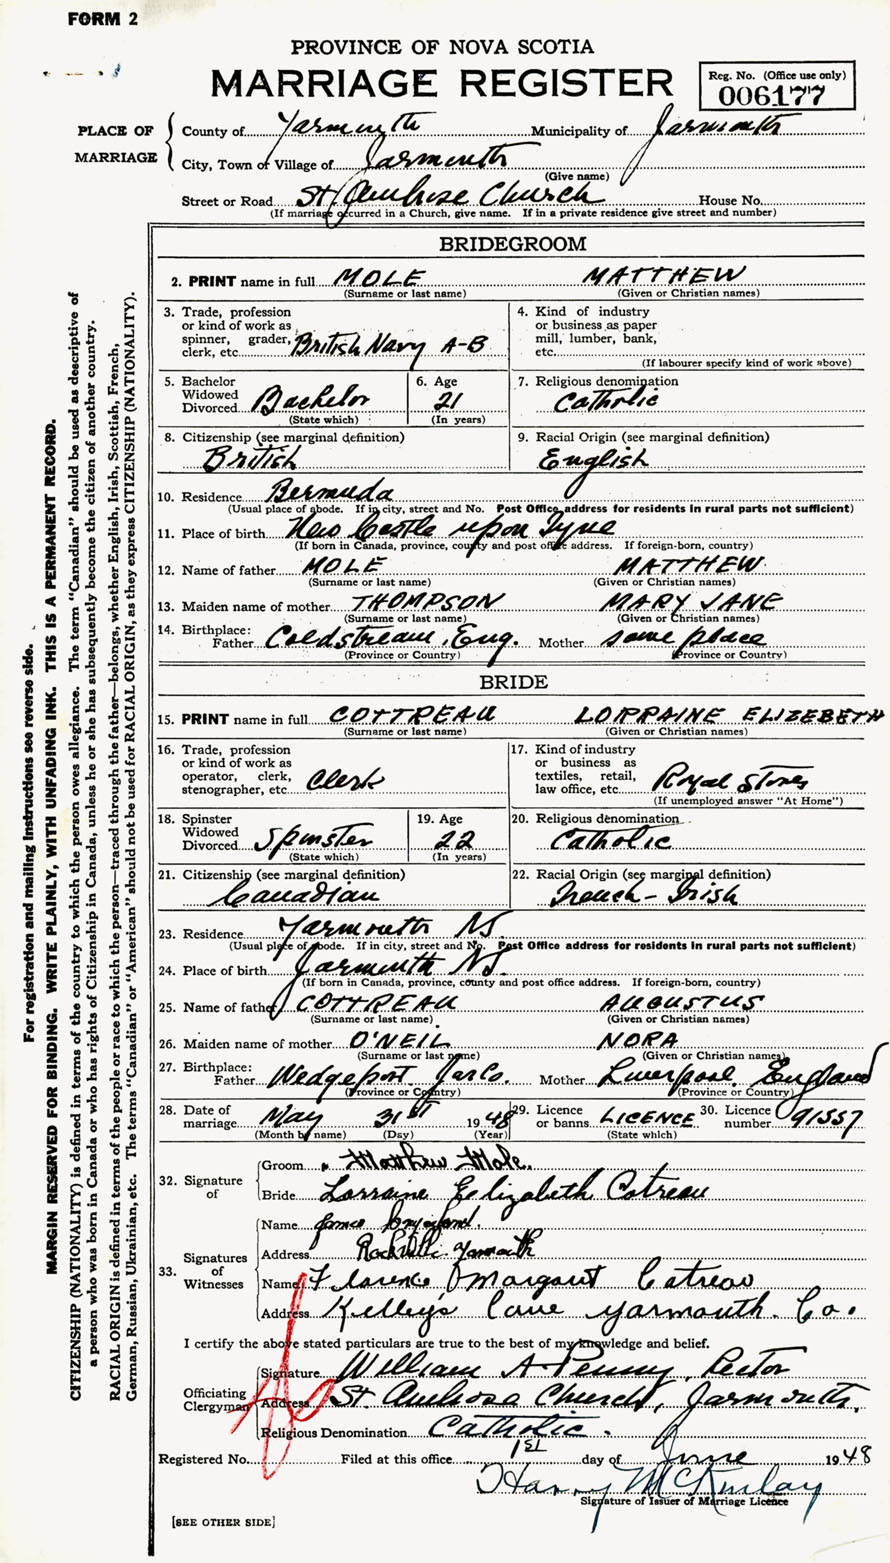 FORM 2
PROVINCE OF NOVA SCOTIA
MARRIAGE REGISTER
Reg. No. (Office use only)
006177
PLACE OF MARRIAGE
County of Yarmouth Municipality of Yarmouth
City, Town or Village of Yarmouth
(Give name)
Street or Road St Ambrose Church House No.
(If marriage occurred in a Church, give name. If in a private residence give street and number)
BRIDEGROOM
2. PRINT name in full MOLE MATTHEW
(Surname or last name) (Given or Christian names)
3. Trade, profession or kind of work as spinner, grader, clerk, etc. British Navy A-B
4. Kind of industry or business as paper mill, lumber, bank, etc.
(If labourer specify kind of work above)
5. Bachelor Widowed Divorced Bachelor
(State which)
6. Age 21
(In years)
7. Religious denomination
Catholic
8. Citizenship (see marginal definition)
British
9. Racial Origin (see marginal definition)
English
10. Residence Bermuda
(Usual place of abode. If in city, street and No. Post Office address for residents in rural parts not sufficient)
11. Place of birth New Castle upon Tyne
(If born in Canada, province, county and post office address. If foreign-born, country)
12. Name of father MOLE MATTHEW
(Surname or last name) (Given or Christian names)
13. Maiden name of mother THOMPSON MARY JANE
(Surname or last name) (Given or Christian names)
14. Birthplace: Father Coldstream, Eng. Mother same place
(Province or Country) (Province or Country)
BRIDE
15. PRINT name in full COTTREAU LORRAINE ELIZEBETH
(Surname or last name) (Given or Christian names)
16. Trade, profession or kind of work as operator, clerk, stenographer, etc. Clerk
17. Kind of industry or business as textiles, retail, law office, etc. Royal Stores
(If unemployed answer "At Home")
18. Spinster Widowed Divorced Spinster
(State which)
19. Age 22
(In years)
20. Religious denomination
Catholic
21. Citizenship (see marginal definition)
Canadian
22. Racial Origin (see marginal definition)
French - Irish
23. Residence Yarmouth NS
(Usual place of abode. If in city, street and No. Post Office address for residents in rural parts not sufficient)
24. Place of birth Yarmouth NS.
(If born in Canada, province, county and post office address. If foreign-born, country)
25. Name of father COTTREAU AUGUSTUS
(Surname or last name) (Given or Christian names)
26. Maiden name of mother O'NEIL NORA
(Surname or last name) (Given or Christian names)
27. Birthplace: Father Wedgeport Yar Co. Mother Liverpool England
(Province or Country) (Province or Country)
28. Date of marriage May 31st 1948
(Month by name) (Day) (Year)
29. Licence or banns LICENCE
(State which)
30. Licence number 91557
32. Signature of
Groom Matthew Mole.
Bride Lorraine Elizabeth Cotreau
33. Signatures of Witnesses
Name
Address Yarmouth
Name Florence Margaret Cotreau
Address Kelley's Cove Yarmouth. Co.
I certify the above stated particulars are true to the best of my knowledge and belief.
Officiating Clergyman
Signature William A Penny, Rector
Address St. Ambrose Church, Yarmouth.
Religious Denomination Catholic.
Registered No. Filed at this office 1st day of June 1948
Harry McKinlay
Signature of Issuer of Marriage Licence
[SEE OTHER SIDE]
For registration and mailing instructions see reverse side.
MARGIN RESERVED FOR BINDING. WRITE PLAINLY, WITH UNFADING INK. THIS IS A PERMANENT RECORD.
CITIZENSHIP (NATIONALITY) is defined in terms of the country to which the person owes allegiance. The term "Canadian" should be used as descriptive of
a person who was born in Canada or who has rights of Citizenship in Canada, unless he or she has subsequently become the citizen of another country.
RACIAL ORIGIN is defined in terms of the people or race to which the person—traced through the father—belongs, whether English, Irish, Scottish, French,
German, Russian, Ukrainian, etc. The terms "Canadian" or "American" should not be used for RACIAL ORIGIN, as they express CITIZENSHIP (NATIONALITY).